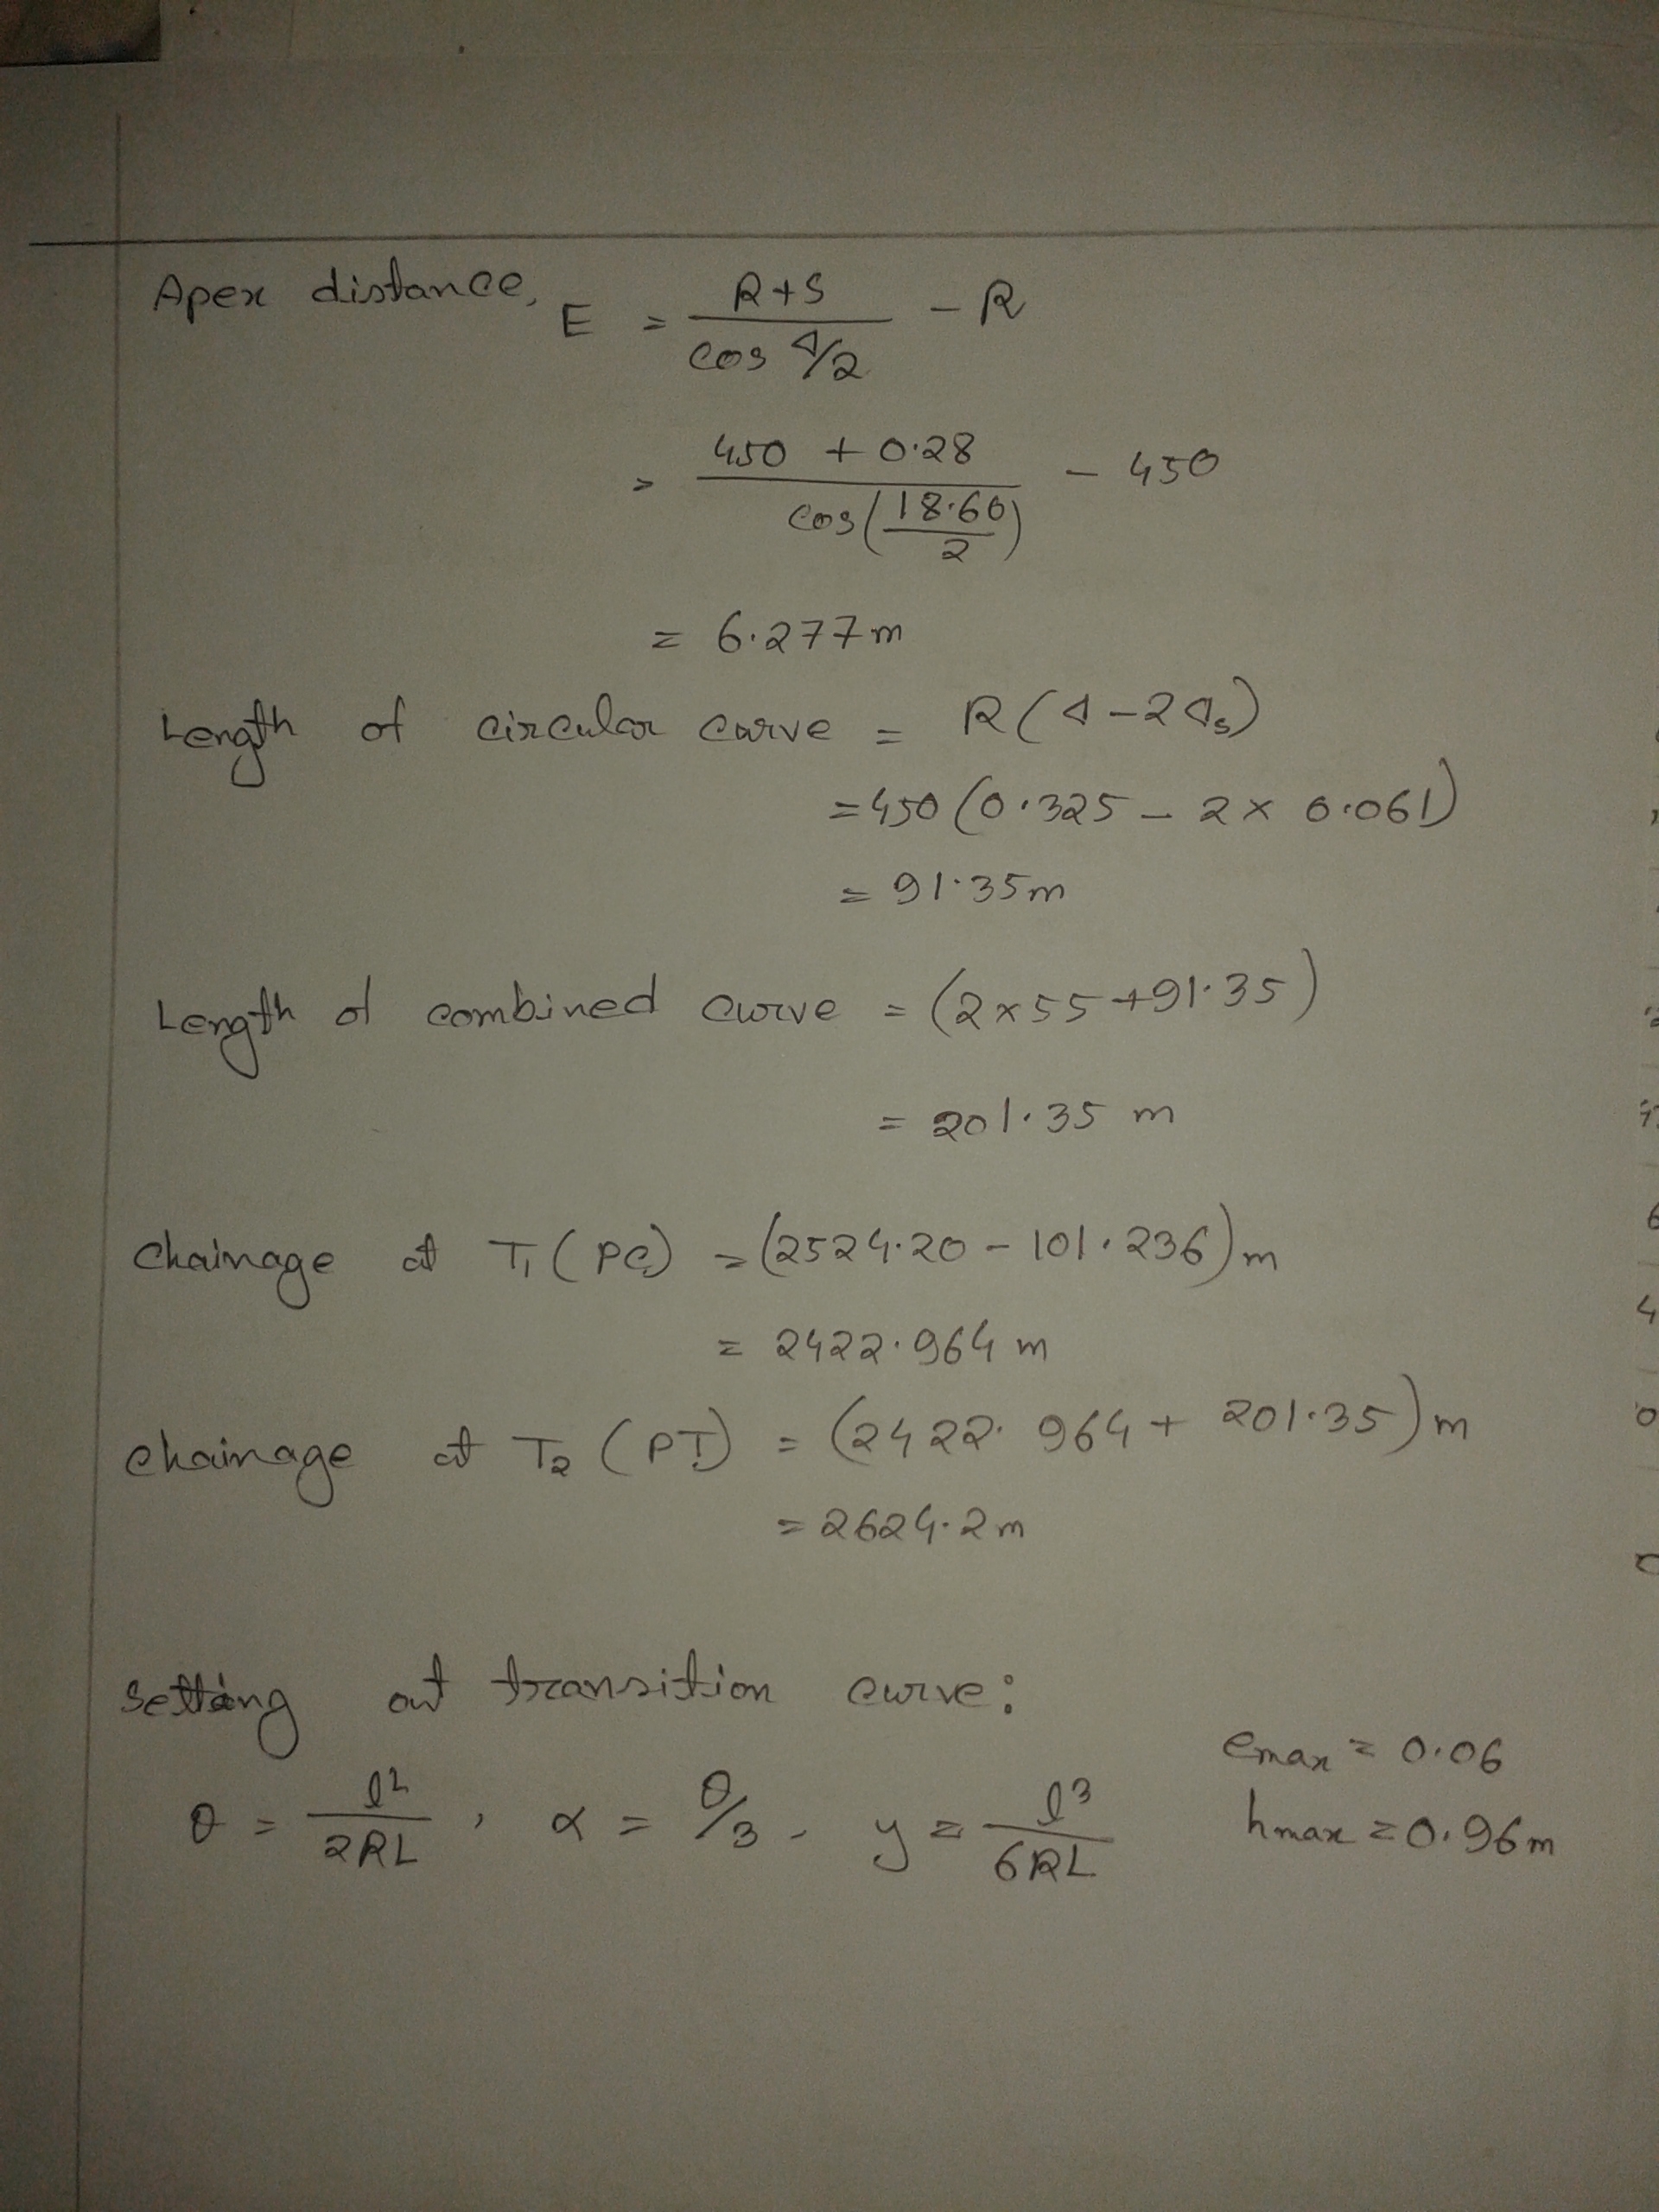 Apex distance, E = (R+S)/(cos Δ/2) - R
= (450 + 0.28)/(cos(18.60/2)) - 450
= 6.277m
Length of circular curve = R(Δ-2Δs)
=450(0.325 - 2 x 0.061)
= 91.35m
Length of combined curve = (2x55+91.35)
= 201.35 m
Chainage at T1 (PC) = (2524.20 - 101.236)m
= 2422.964 m
Chainage at T2 (PT) = (2422.964 + 201.35)m
= 2624.2m
Setting out transition curve:
emax = 0.06
θ = l²/2RL, α = θ/3, y = l³/6RL
hmax = 0.96m